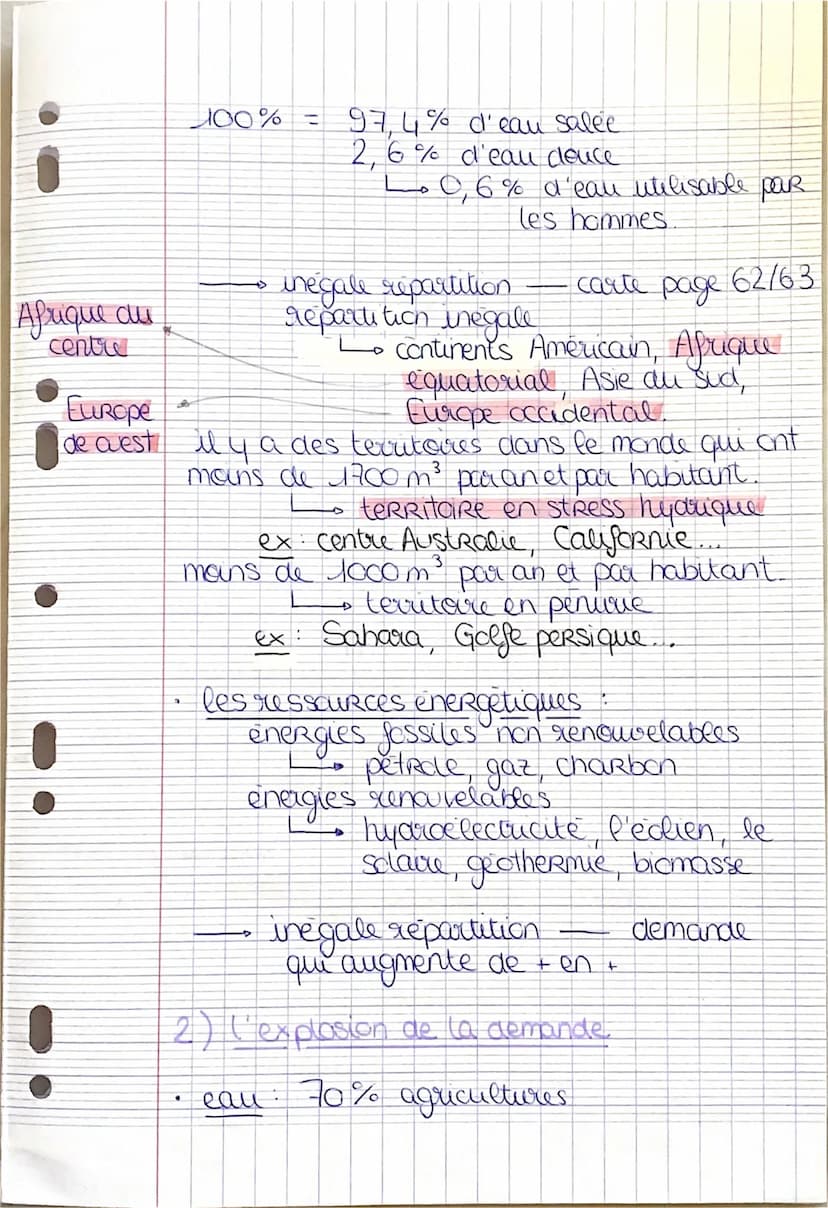 100% = 97,4% d'eau salée
2,6% d'eau douce
↳ 0,6% d'eau utilisable par
les hommes.
⟶ inégale répartition — carte page 62/63
répartition inégale
↳ continents Américain, Afrique
équatorial, Asie du Sud,
Europe occidental.
Afrique du
centre
Europe
de ouest
il y a des territoires dans le monde qui ont
moins de 1700 m³ par an et par habitant.
↳ territoire en stress hydrique
ex : centre Australie, Californie...
moins de 1000 m³ par an et par habitant.
↳ territoire en pénurie
ex : Sahara, Golfe persique...
• les ressources énergétiques :
énergies fossiles non renouvelables
↳ pétrole, gaz, charbon
énergies renouvelables
↳ hydroélectricité, l'éolien, le
solaire, géothermie, biomasse
⟶ inégale répartition — demande
qui augmente de + en +
2) L'explosion de la demande
• eau : 70% agricultures